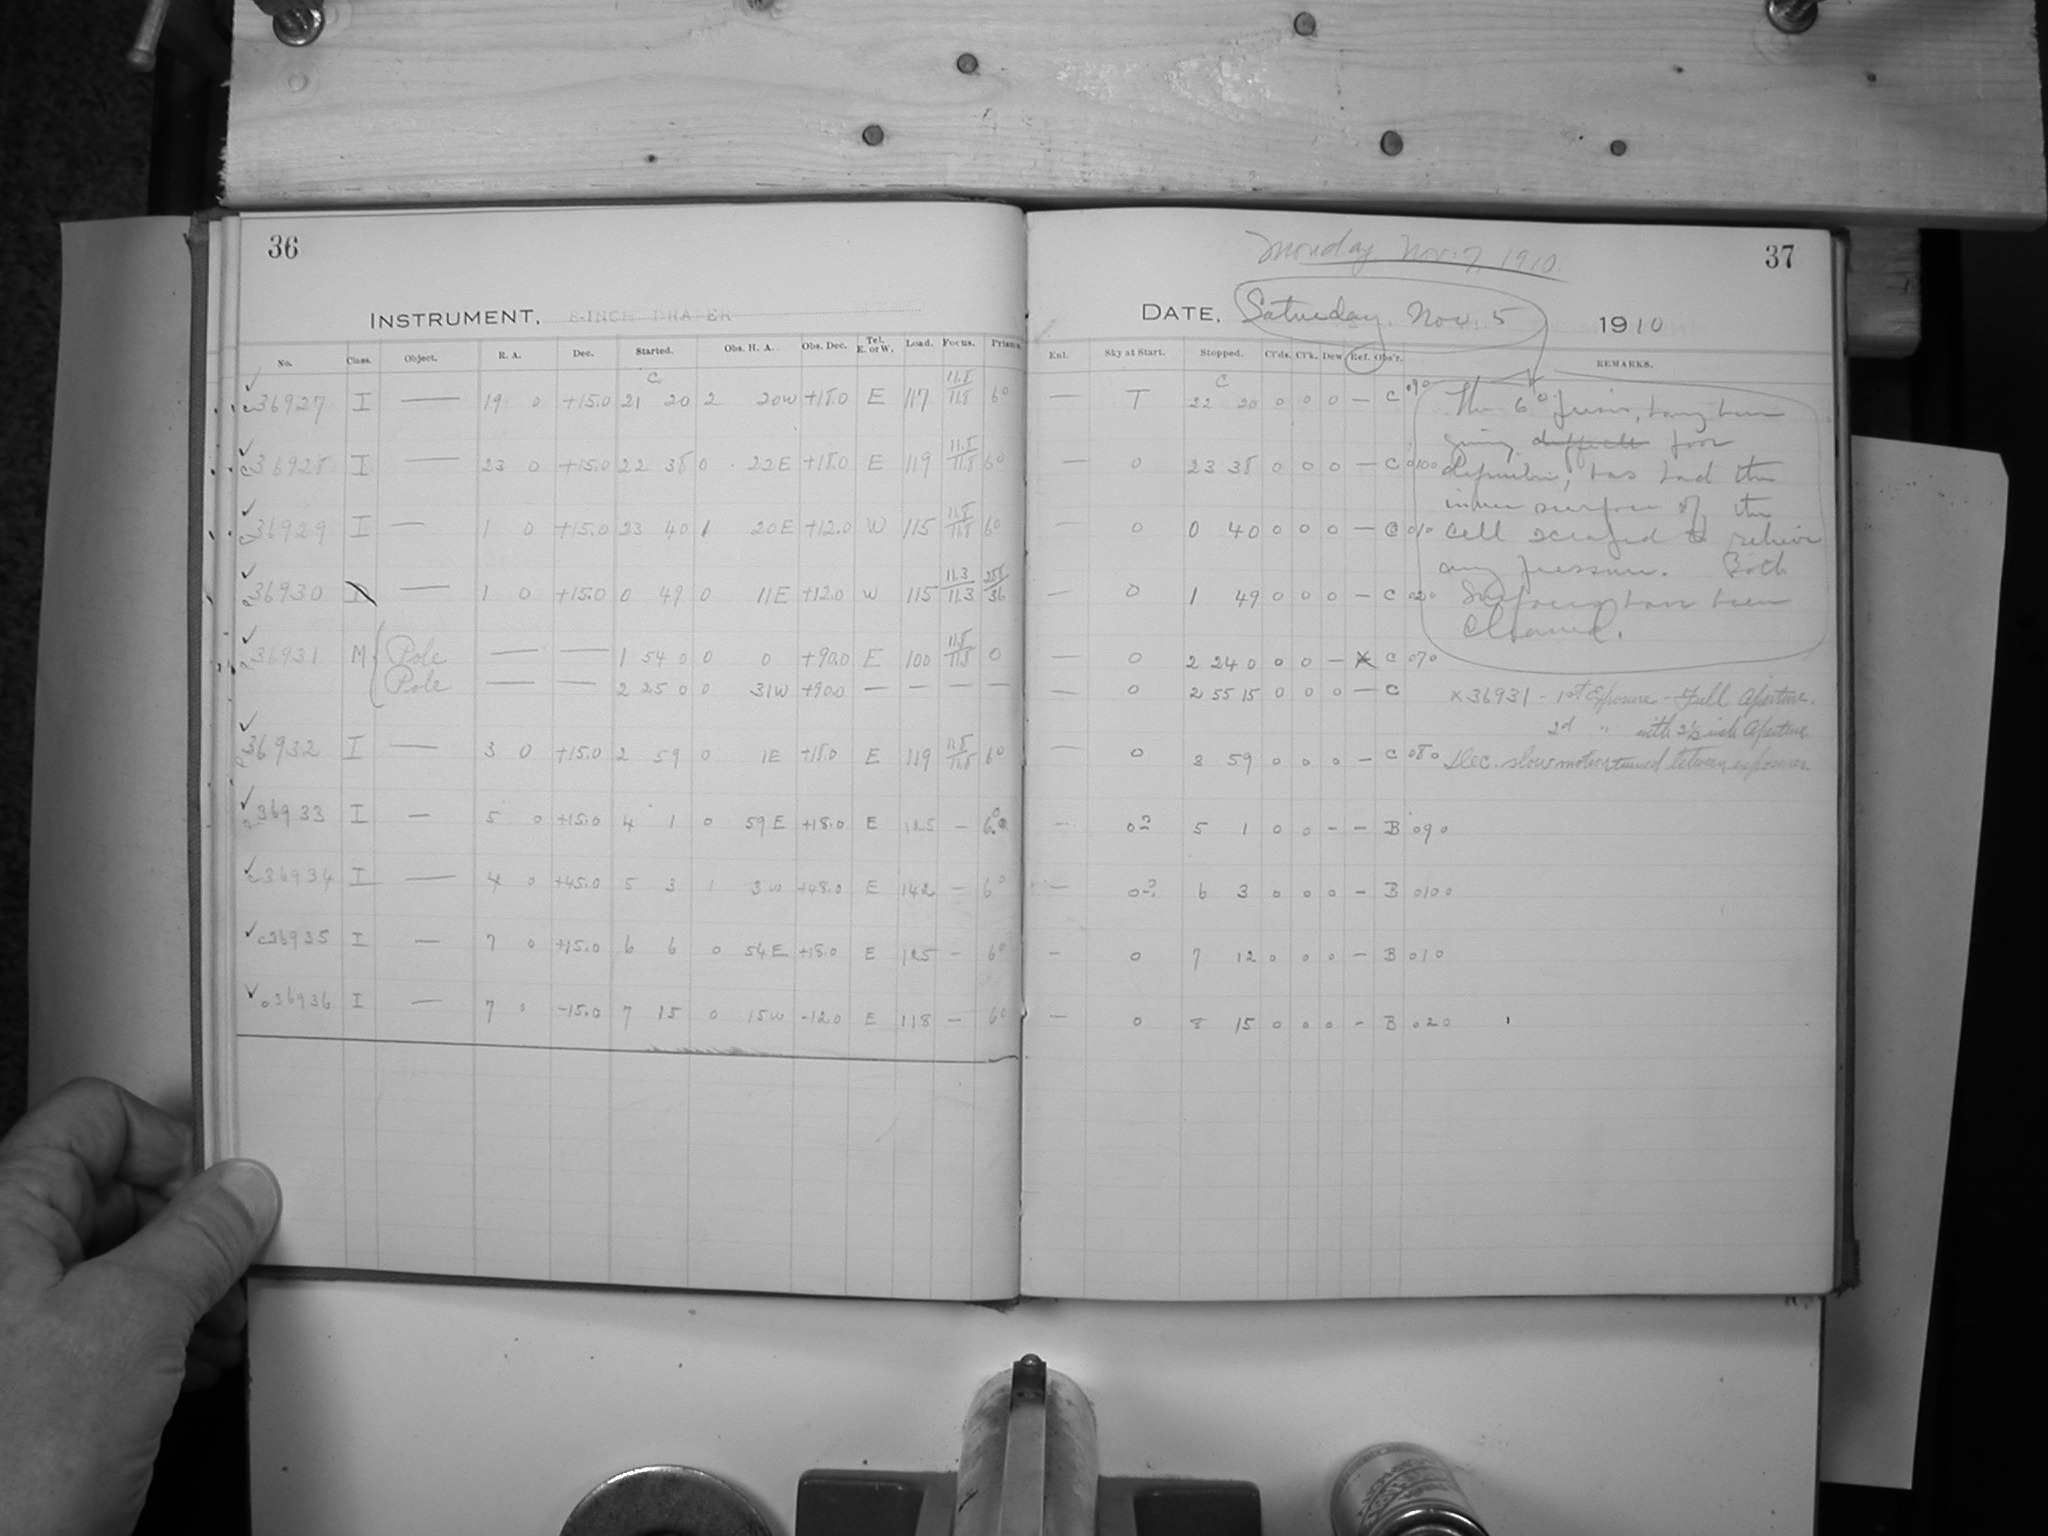 36
37
Monday, Nov. 7, 1910
INSTRUMENT, 8-INCH DRAPER
DATE, Saturday, Nov. 5 1910
No. Class. Object. R. A. Dec. Started. Obs. H. A. Obs. Dec. Tel. E. or W. Load. Focus. Prism.
Enl. Sky at Start. Stopped. Cl'ds. Cl'k. Dew. Ref. Obs'r. REMARKS.
c
c
✓ c36927 I — 19 0 +15.0 21 20 2 20W +18.0 E 117 11.8/11.8 6° — T 22 20 0 0 0 — C 090
✓ c36928 I — 23 0 +15.0 22 38 0 22E +18.0 E 119 11.8/11.8 6° — 0 23 38 0 0 0 — C 0100
✓ c36929 I — 1 0 +15.0 23 40 1 20E +12.0 W 115 11.8/11.8 6° — 0 0 40 0 0 0 — C 010
✓ 36930 — 1 0 +15.0 0 49 0 11E +12.0 W 115 11.3/11.3 — 0 1 49 0 0 0 — C 020
✓ 36931 M Pole — — 1 54 0 0 0 +90.0 E 100 11.8/11.8 0 — 0 2 24 0 0 0 — X C 070
Pole — — 2 25 0 0 31W +90.0 — — — — — 0 2 55 15 0 0 0 — C
✓ 36932 I — 3 0 +15.0 2 59 0 1E +18.0 E 119 11.8/11.8 6° — 0 3 59 0 0 0 — C 080
✓ 36933 I — 5 0 +15.0 4 1 0 59E +18.0 E 125 — 6° — 0? 5 1 0 0 — — B 090
✓ c36934 I — 4 0 +45.0 5 3 1 3W +48.0 E 142 — 6° — 0? 6 3 0 0 0 — B 0100
✓ c36935 I — 7 0 +15.0 6 6 0 54E +18.0 E 125 — 6° — 0 7 12 0 0 0 — B 010
✓ c36936 I — 7 0 -15.0 7 15 0 15W -12.0 E 118 — 6° — 0 8 15 0 0 0 — B 020
The 6° prism, having been
giving difficult poor
definition, has had the
inner surface of the
cell scraped to relieve
any pressure. Both
surfaces have been
cleaned.
x 36931 - 1st Exposure - Full Aperture.
2d " with 2½ inch Aperture
Dec. slow motion turned between exposures